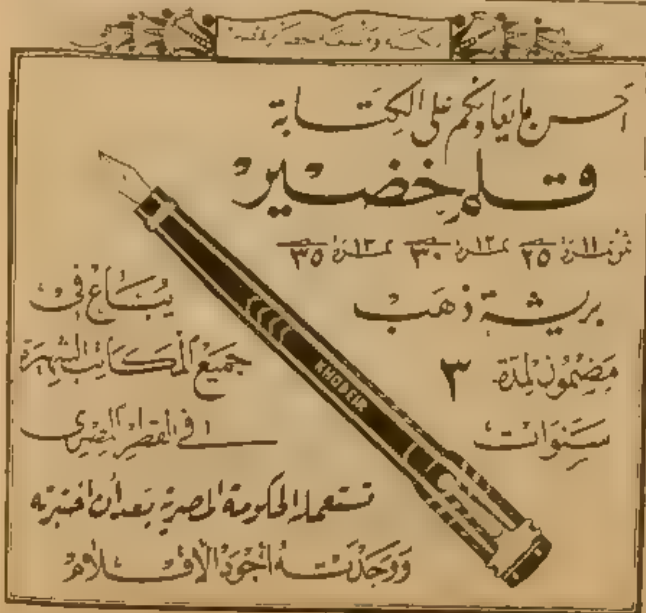 احسن ما يعاونكم على الكتابة
قلم خضير
ثمن نمرة ١١ ٢٥ نمرة ١٢ ٣٠ نمرة ١٣ ٣٥
بريشة ذهب
مضمون لمدة ٣
سنوات
يباع في
جميع المكاتب الشهيرة
في القطر المصري
KHODEIR
تستعمله الحكومة المصرية بعد أن اختبرته
ووجدته أجود الأقلام